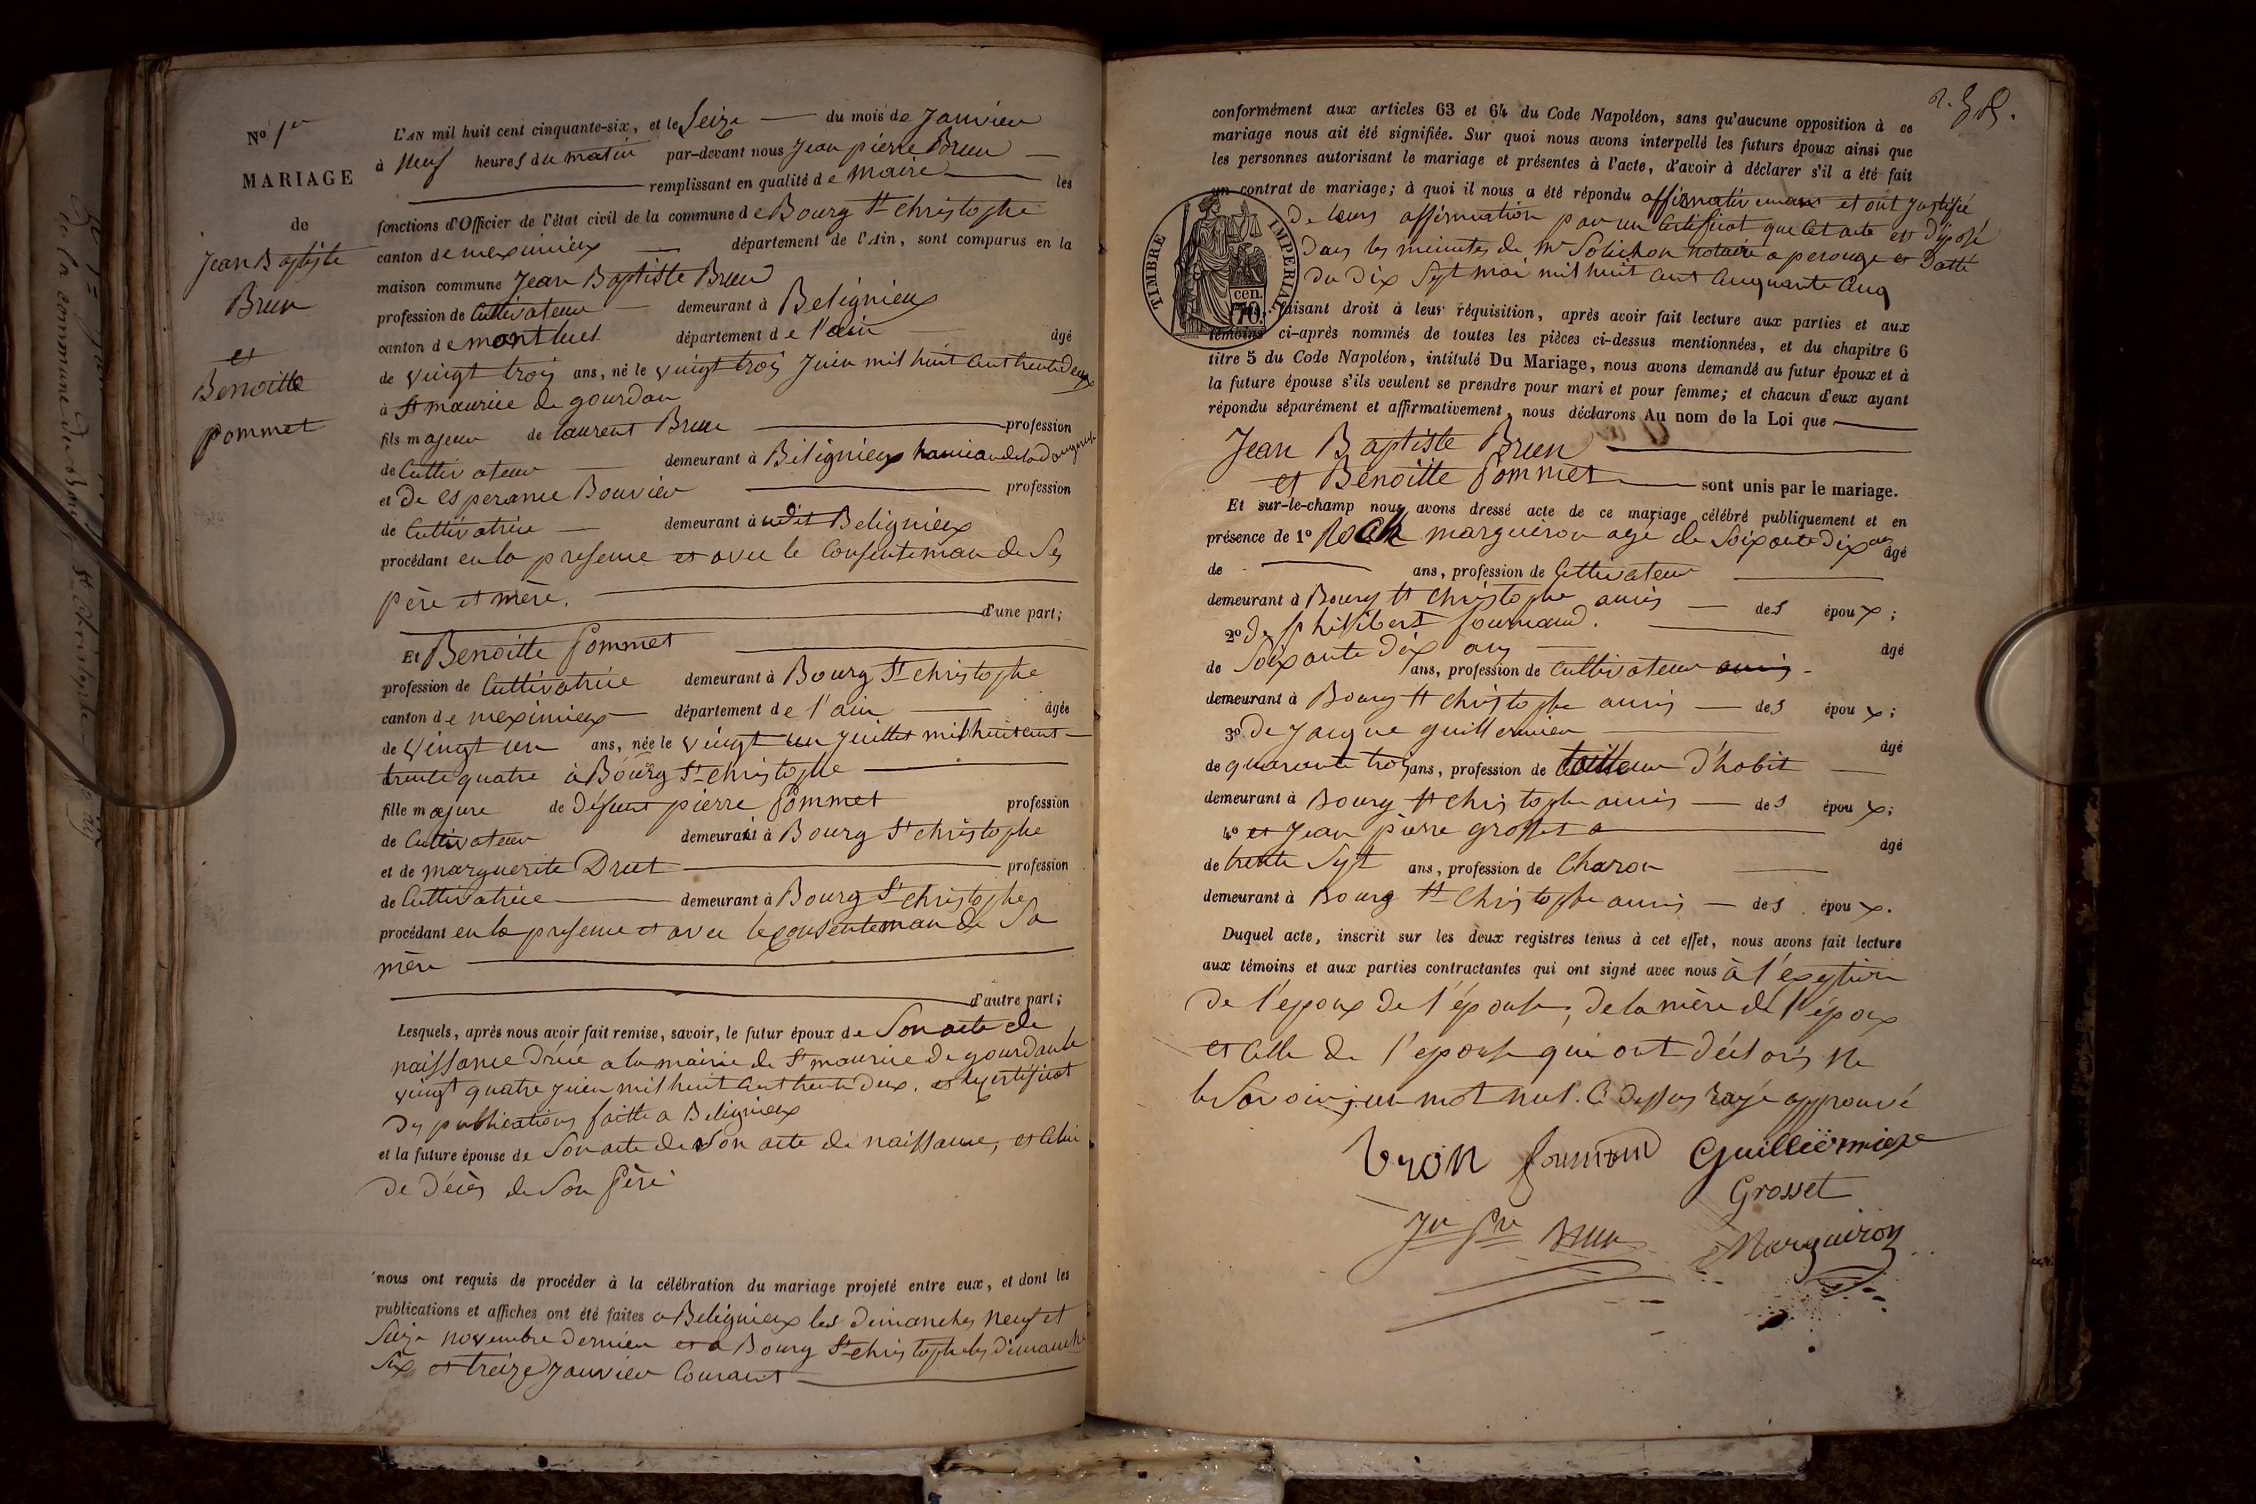 No 1er
MARIAGE
de
Jean Baptiste
Brun
et
Benoitte
pommet
L'AN mil huit cent cinquante-six, et le Seize du mois de Janvier
à Neuf heures du matin par-devant nous Jean pierre Brun
remplissant en qualité de maire les
fonctions d'Officier de l'état civil de la commune de Bourg St christophe
canton de meximieux département de l'Ain, sont comparus en la
maison commune Jean Baptiste Brun
profession de Cultivateur demeurant à Beligneux
canton de montluel département de l'ain âgé
de vingt trois ans, né le vingt trois Juin mil huit cent trente deux
à St maurice de gourdan
fils majeur de laurent Brun profession
de Cultivateur demeurant à Béligneux
et de esperance Bouvier profession
de Cultivatrice demeurant à udit Beligneux
procédant en la presence et avec le Consenteman de Ses
père et mère.
d'une part;
Et Benoitte Pommet
profession de Cultivatrice demeurant à Bourg St christophe
canton de meximieux département de l'ain âgée
de vingt un ans, née le vingt un Juillet mil huit cent
trente quatre à Bourg St christophe
fille majure de défunt pierre Pommet profession
de Cultivateur demeurant à Bourg St christophe
et de marguerite Druet profession
de Cultivatrice demeurant à Bourg St christophe
procédant en la presence et avec le consenteman de Sa
mère
d'autre part;
Lesquels, après nous avoir fait remise, savoir, le futur époux de Son acte de
naissance a la mairie de St maurice de gourdan le
vingt quatre Juin mil huit cent trente deux. et certificat
des publications faitte a Beligneux
et la future épouse de Son acte de Son acte de naissance, et celui
de décès de Son Père
nous ont requis de procéder à la célébration du mariage projeté entre eux, et dont les
publications et affiches ont été faites a Beligneux les dimanches neuf et
Seize novembre dernier et a Bourg St christophe les dimanche
Six et treize Janvier Courant
conformément aux articles 63 et 64 du Code Napoléon, sans qu'aucune opposition à ce
mariage nous ait été signifiée. Sur quoi nous avons interpellé les futurs époux ainsi que
les personnes autorisant le mariage et présentes à l'acte, d'avoir à déclarer s'il a été fait
un contrat de mariage; à quoi il nous a été répondu affirmativeman et ont Justifié
de leurs affirmation par un Certificat que cet acte est déposé
dans les minutes de Mr notaire a perouge et datté
du dix Sept mai mil huit cent cinquante cinq
TIMBRE IMPERIAL
cen. 70.
faisant droit à leur réquisition, après avoir fait lecture aux parties et aux
témoins ci-après nommés de toutes les pièces ci-dessus mentionnées, et du chapitre 6
titre 5 du Code Napoléon, intitulé Du Mariage, nous avons demandé au futur époux et à
la future épouse s'ils veulent se prendre pour mari et pour femme; et chacun d'eux ayant
répondu séparément et affirmativement, nous déclarons Au nom de la Loi que
Jean Baptiste Brun
et Benoitte Pommet sont unis par le mariage.
Et sur-le-champ nous avons dressé acte de ce mariage célébré publiquement et en
présence de 1º Roch marguiron agé de Soixante dix ans âgé
de ans, profession de Cultivateur
demeurant à Bourg St christophe amis des époux;
2º de philibert fournand.
de Soixante dix ans âgé
ans, profession de Cultivateur amis
demeurant à Bourg St christophe amis des époux;
3º de Jacque guillermier
de quarante trois ans, profession de tailleur d'habit âgé
demeurant à Bourg St christophe amis des époux;
4º et Jean pierre grosset a
de trente Sept ans, profession de Charon âgé
demeurant à Bourg St Christophe amis des époux.
Duquel acte, inscrit sur les deux registres tenus à cet effet, nous avons fait lecture
aux témoins et aux parties contractantes qui ont signé avec nous à l'exeption
de l'epoux de l'épouse, de la mère de l'époux
et celle de l'epouse qui ont déclarés ne
le Savoir, un mot nul. Ci dessus rayé approuvé
Guilliermier
Grosset
Jn Pre Brun
Marguiron